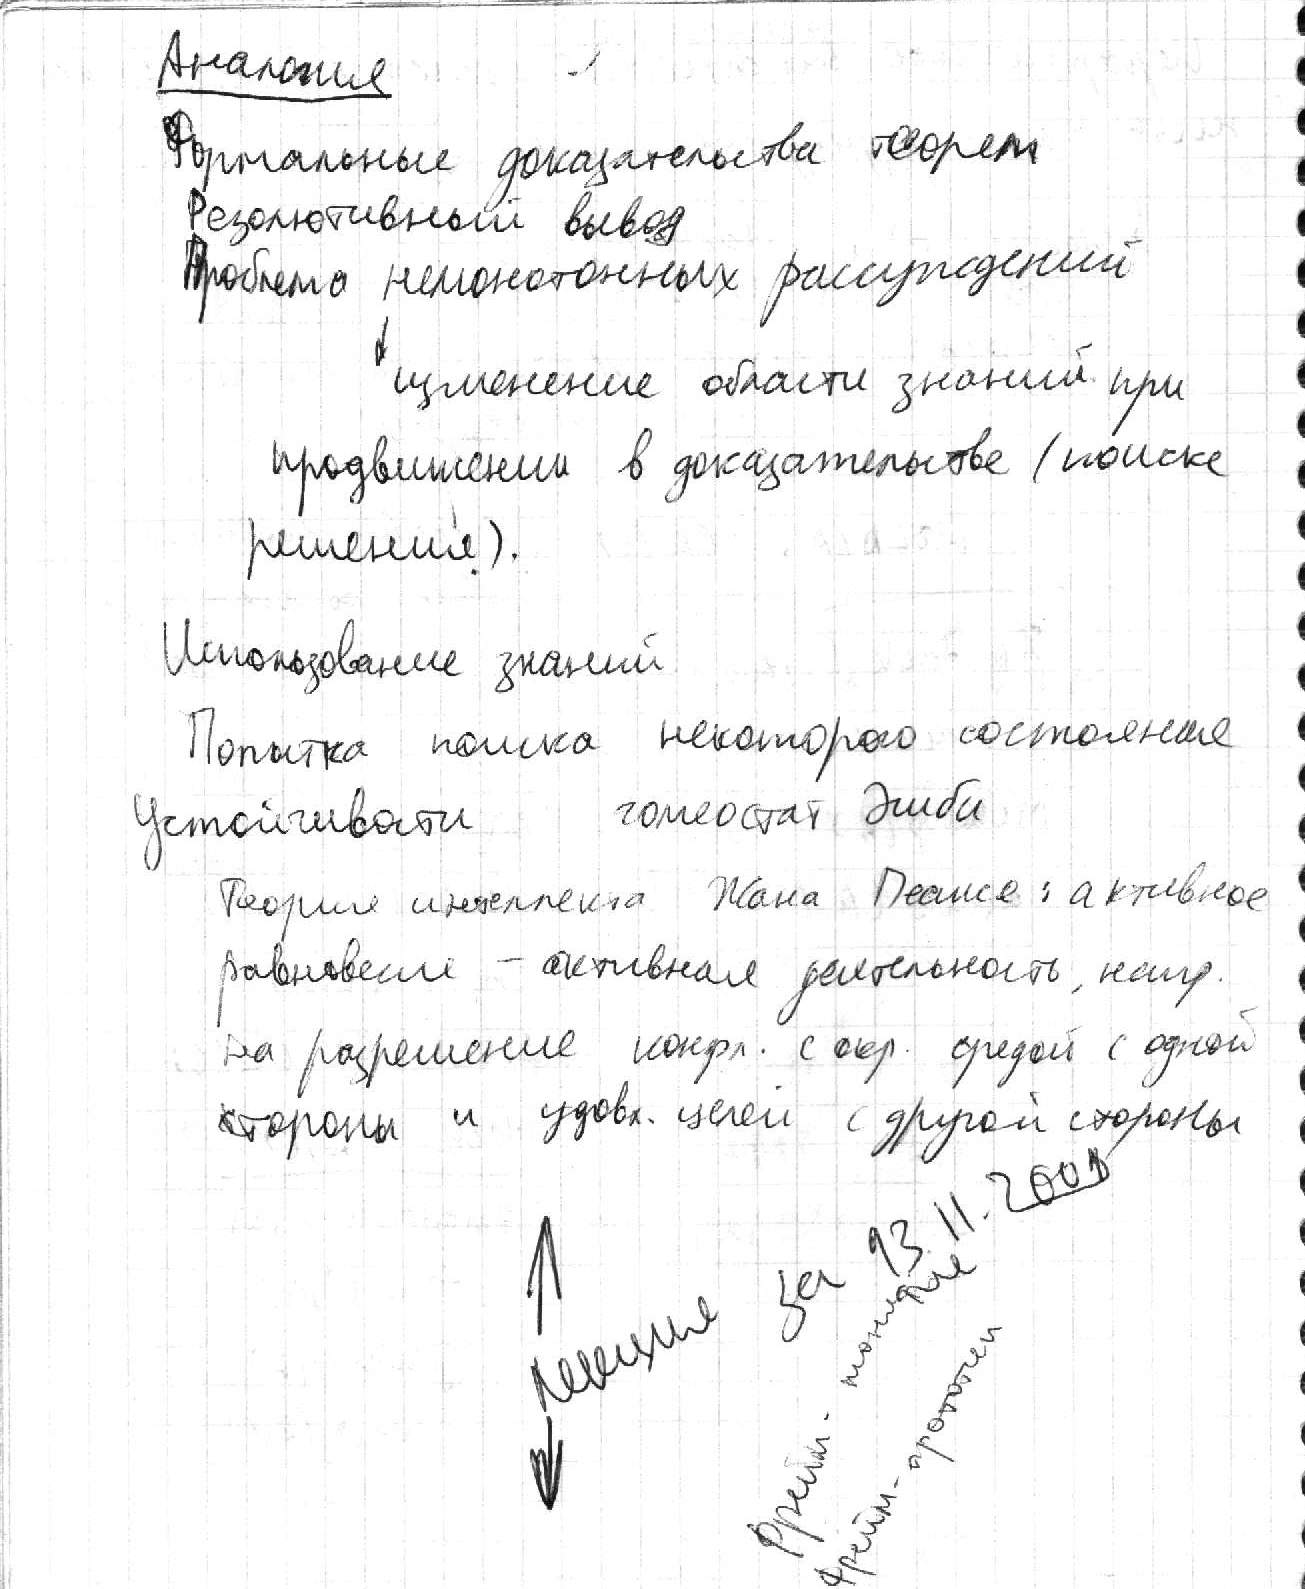 Аналогия
Формальные доказательства теорем
Резолютивный вывод
Проблема немонотонных рассуждений
изменение области знаний при
продвижении в доказательстве (поиске
решения).
Использование знаний
Попытка поиска некоторого состояния
Устойчивости гомеостат Эшби
Теория интеллекта Жана Пеаже: активное
равновесие – активная деятельность, напр.
на разрешение конфл. с окр. средой с одной
стороны и удовл. целей с другой стороны
лекция за 13.11.2001
Фрейм-
Фрейм-прототип